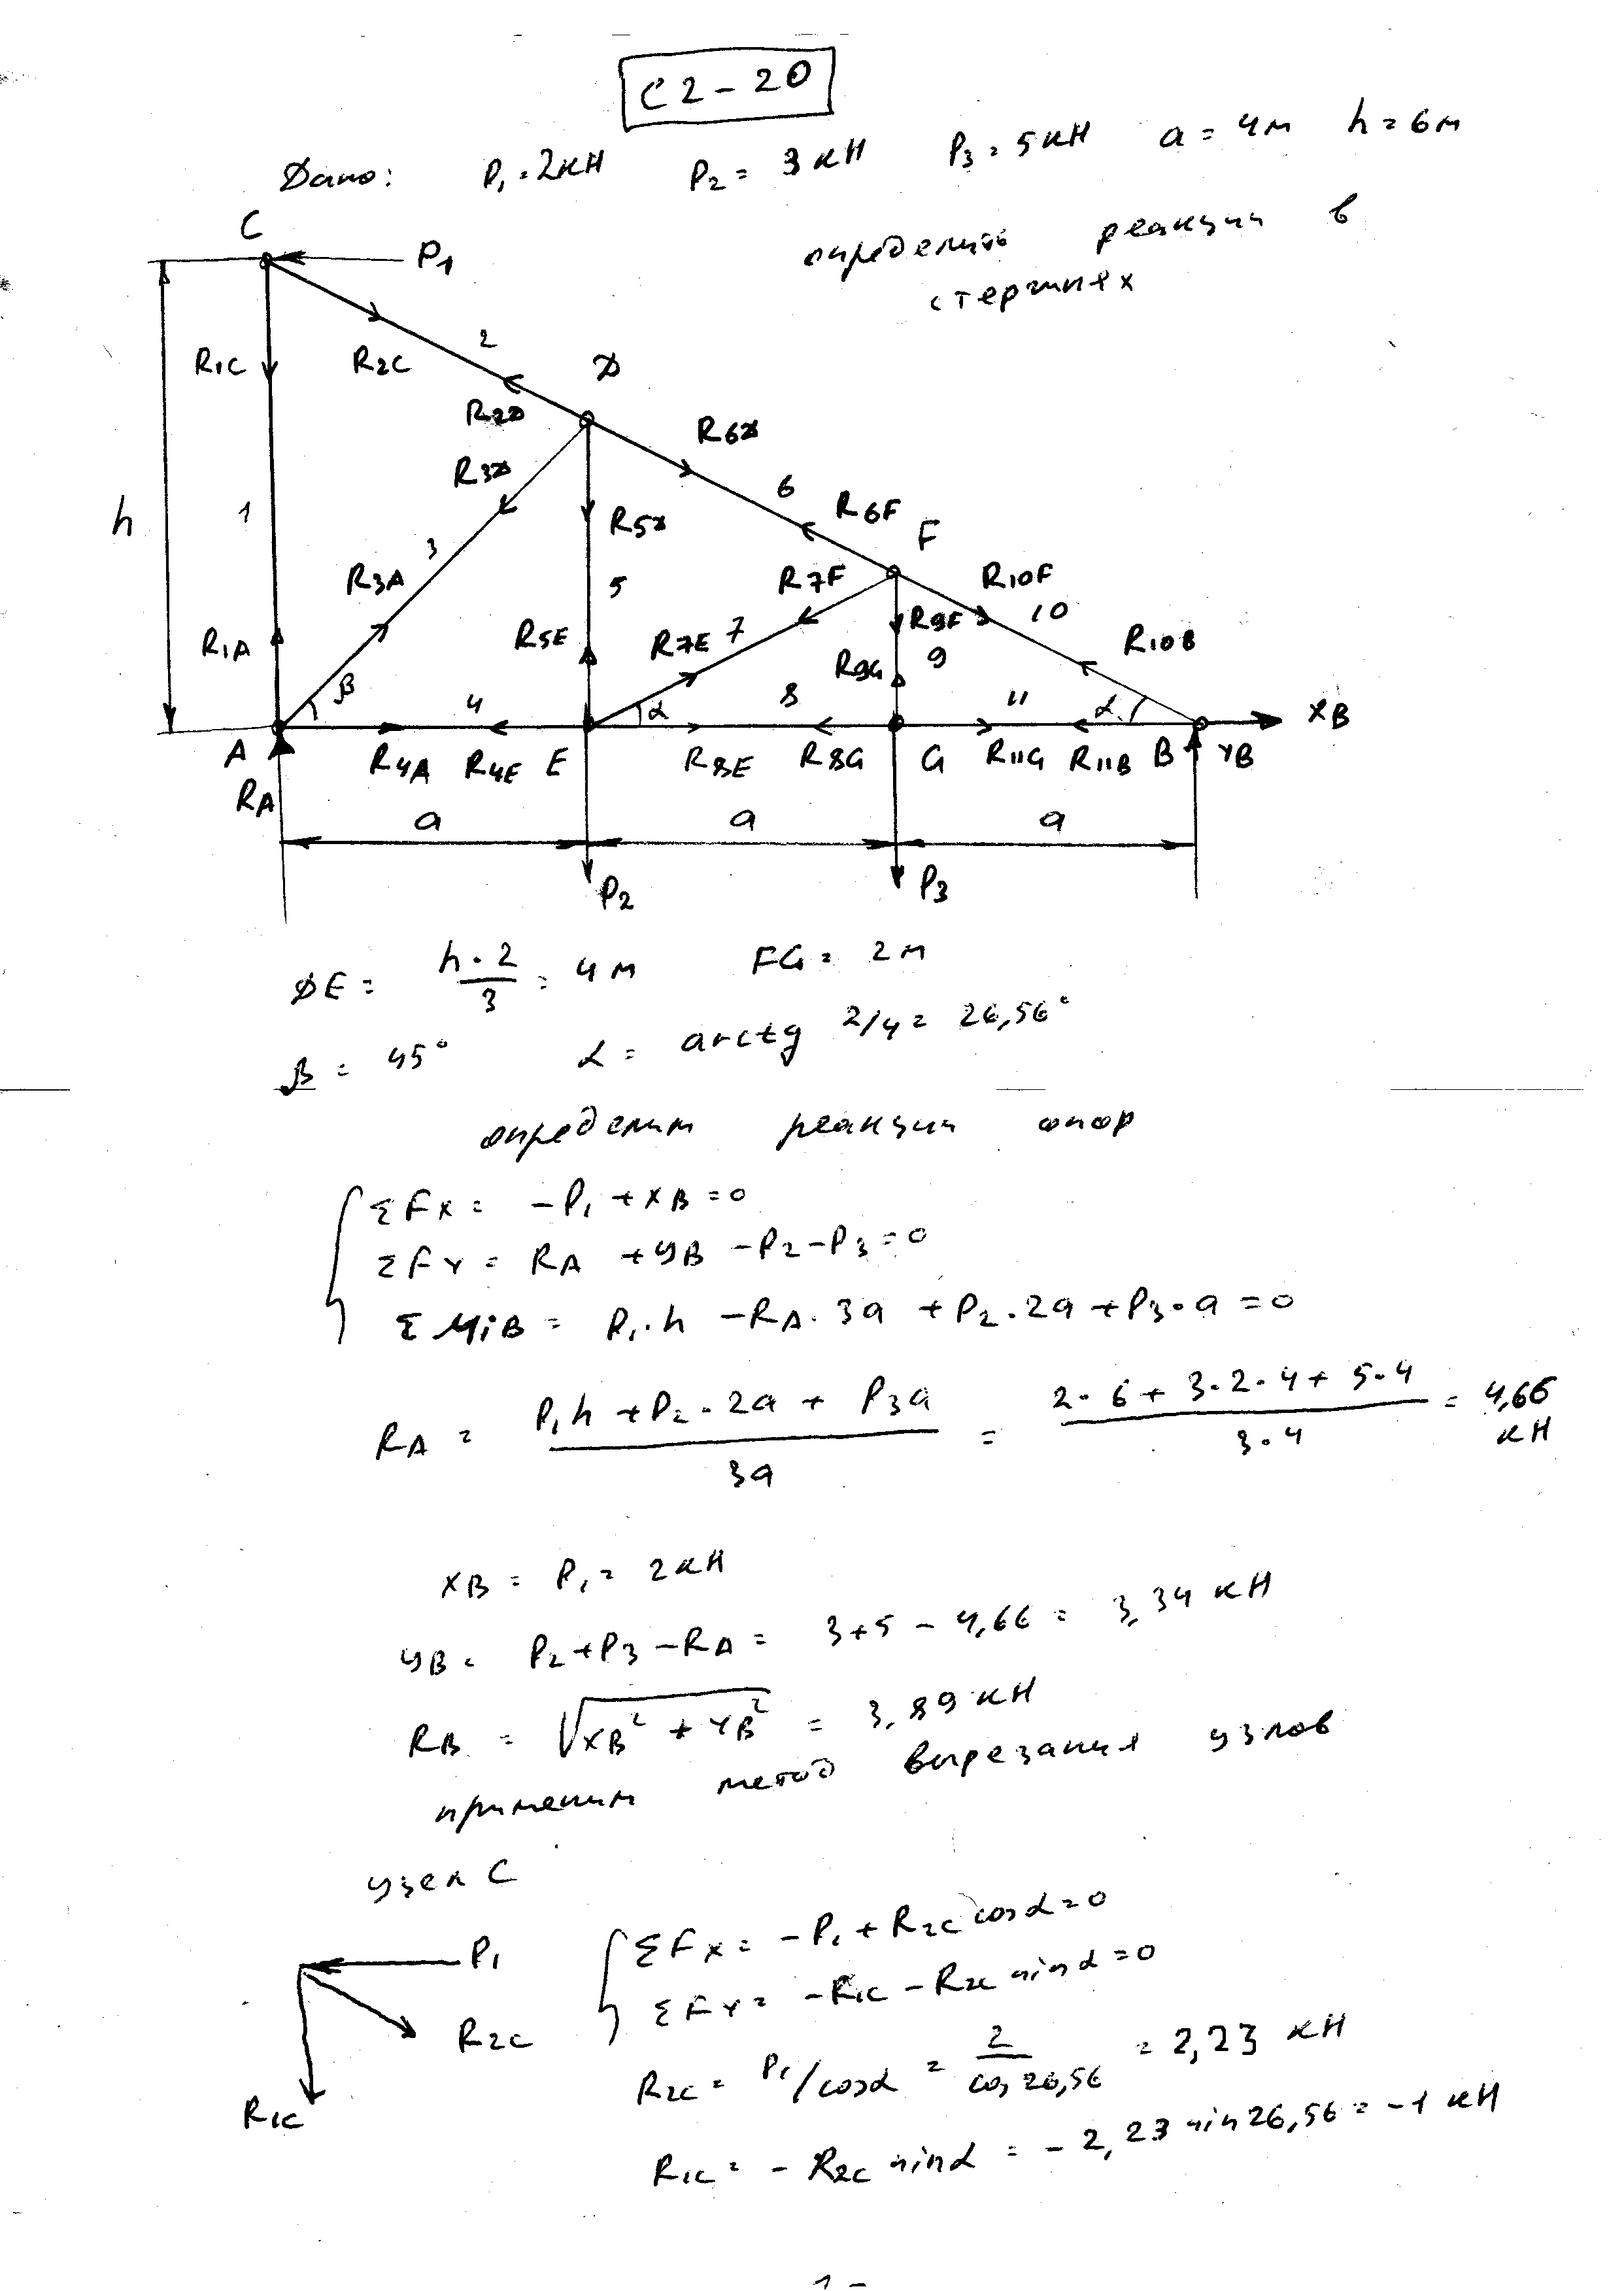 С2-20
Дано: P₁=2кН P₂= 3кН P₃=5кН a=4м h=6м
определить реакции в
стержнях
C
P₁
R1C R2C 2 D
R2D R6D
R3D 6 R6F
h 1 R5D F
3 R3A 5 R7F R10F
R1A R5E R7E 7 R9F 10 R10B
β R9G 9
4 α 8 11 α XB
A R4A R4E E R8E R8G G R11G R11B B YB
RA
a a a
P₂ P₃
DE = h·2/3 = 4м FG= 2м
β = 45° α= arctg 2/4= 26,56°
определим реакции опор
ΣFx= -P₁+XB=0
ΣFy= RA +YB -P2-P3=0
ΣMiB= P₁·h -RA·3a +P2·2a+P3·a=0
RA = (P₁h+P2·2a+P3a)/3a = (2·6+3·2·4+5·4)/3·4 = 4,66 кН
XB= P₁= 2кН
YB= P2+P3-RA= 3+5-4,66= 3,34 кН
RB = √XB²+YB² = 3,89 кН
применим метод вырезания узлов
узел C
P₁
R2C
R1C
ΣFx= -P₁+R2C cosα=0
ΣFy= -R1C-R2C sinα=0
R2C= P₁/cosα = 2/cos26,56 = 2,23 кН
R1C= -R2C sinα = -2,23 sin26,56= -1 кН
1-